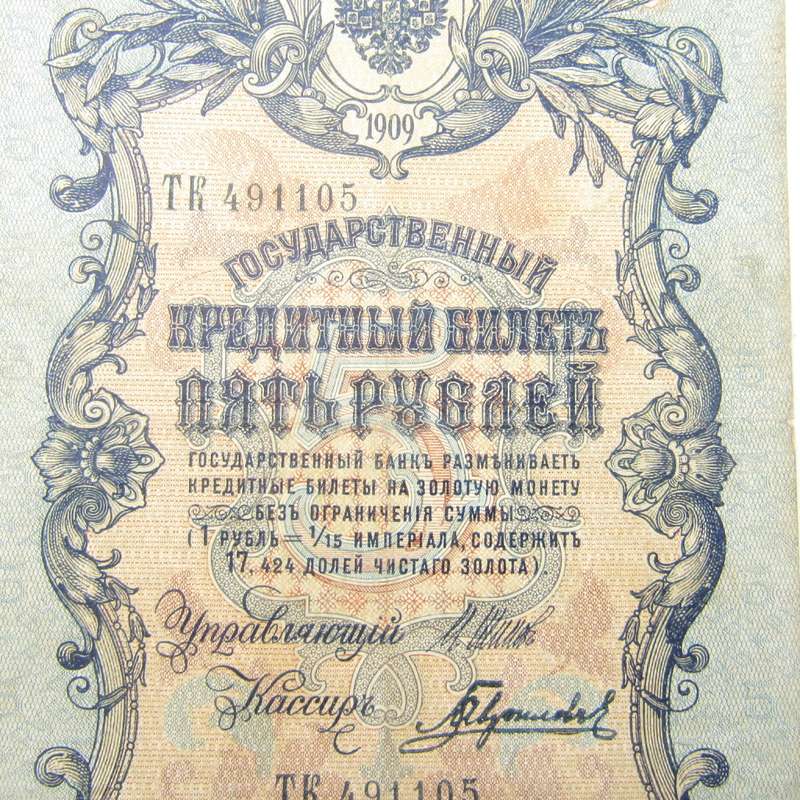 1909
ТК 491105
ГОСУДАРСТВЕННЫЙ
КРЕДИТНЫЙ БИЛЕТЪ
5
ПЯТЬ РУБЛЕЙ
ГОСУДАРСТВЕННЫЙ БАНКЪ РАЗМѢНИВАЕТЪ
КРЕДИТНЫЕ БИЛЕТЫ НА ЗОЛОТУЮ МОНЕТУ
БЕЗЪ ОГРАНИЧЕНІЯ СУММЫ
(1 РУБЛЬ = 1/15 ИМПЕРІАЛА, СОДЕРЖИТЪ
17,424 ДОЛЕЙ ЧИСТАГО ЗОЛОТА).
Управляющій
Кассиръ
ТК 491105